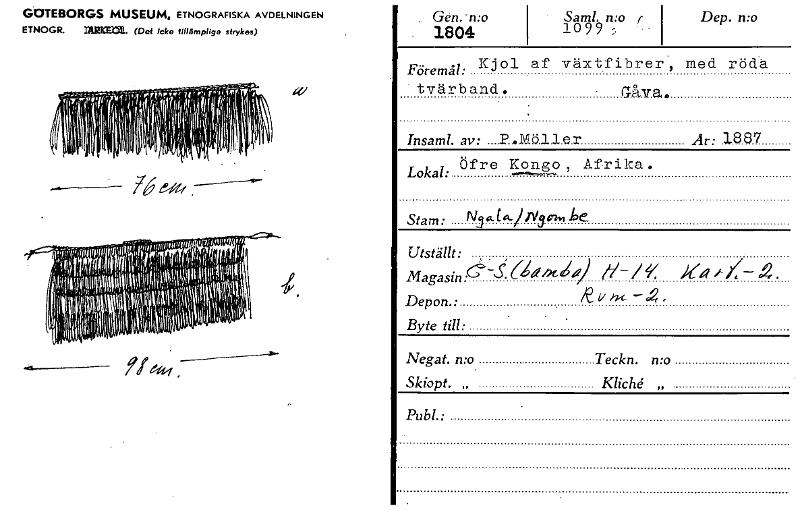 GÖTEBORGS MUSEUM, ETNOGRAFISKA AVDELNINGEN
ETNOGR. ARKEOL. (Det icke tillämpliga strykes)
a
76 cm.
b.
98 cm.
Gen. n:o Saml. n:o Dep. n:o
1804 1099
Föremål: Kjol af växtfibrer, med röda
tvärband. Gåva.
Insaml. av: P.Möller År: 1887
Lokal: Öfre Kongo, Afrika.
Stam: Ngala/Ngombe
Utställt:
Magasin: C-S.(bamba) H-14. Kart.-2.
Depon.: Rum-2.
Byte till:
Negat. n:o Teckn. n:o
Skiopt. „ Kliché „
Publ.: